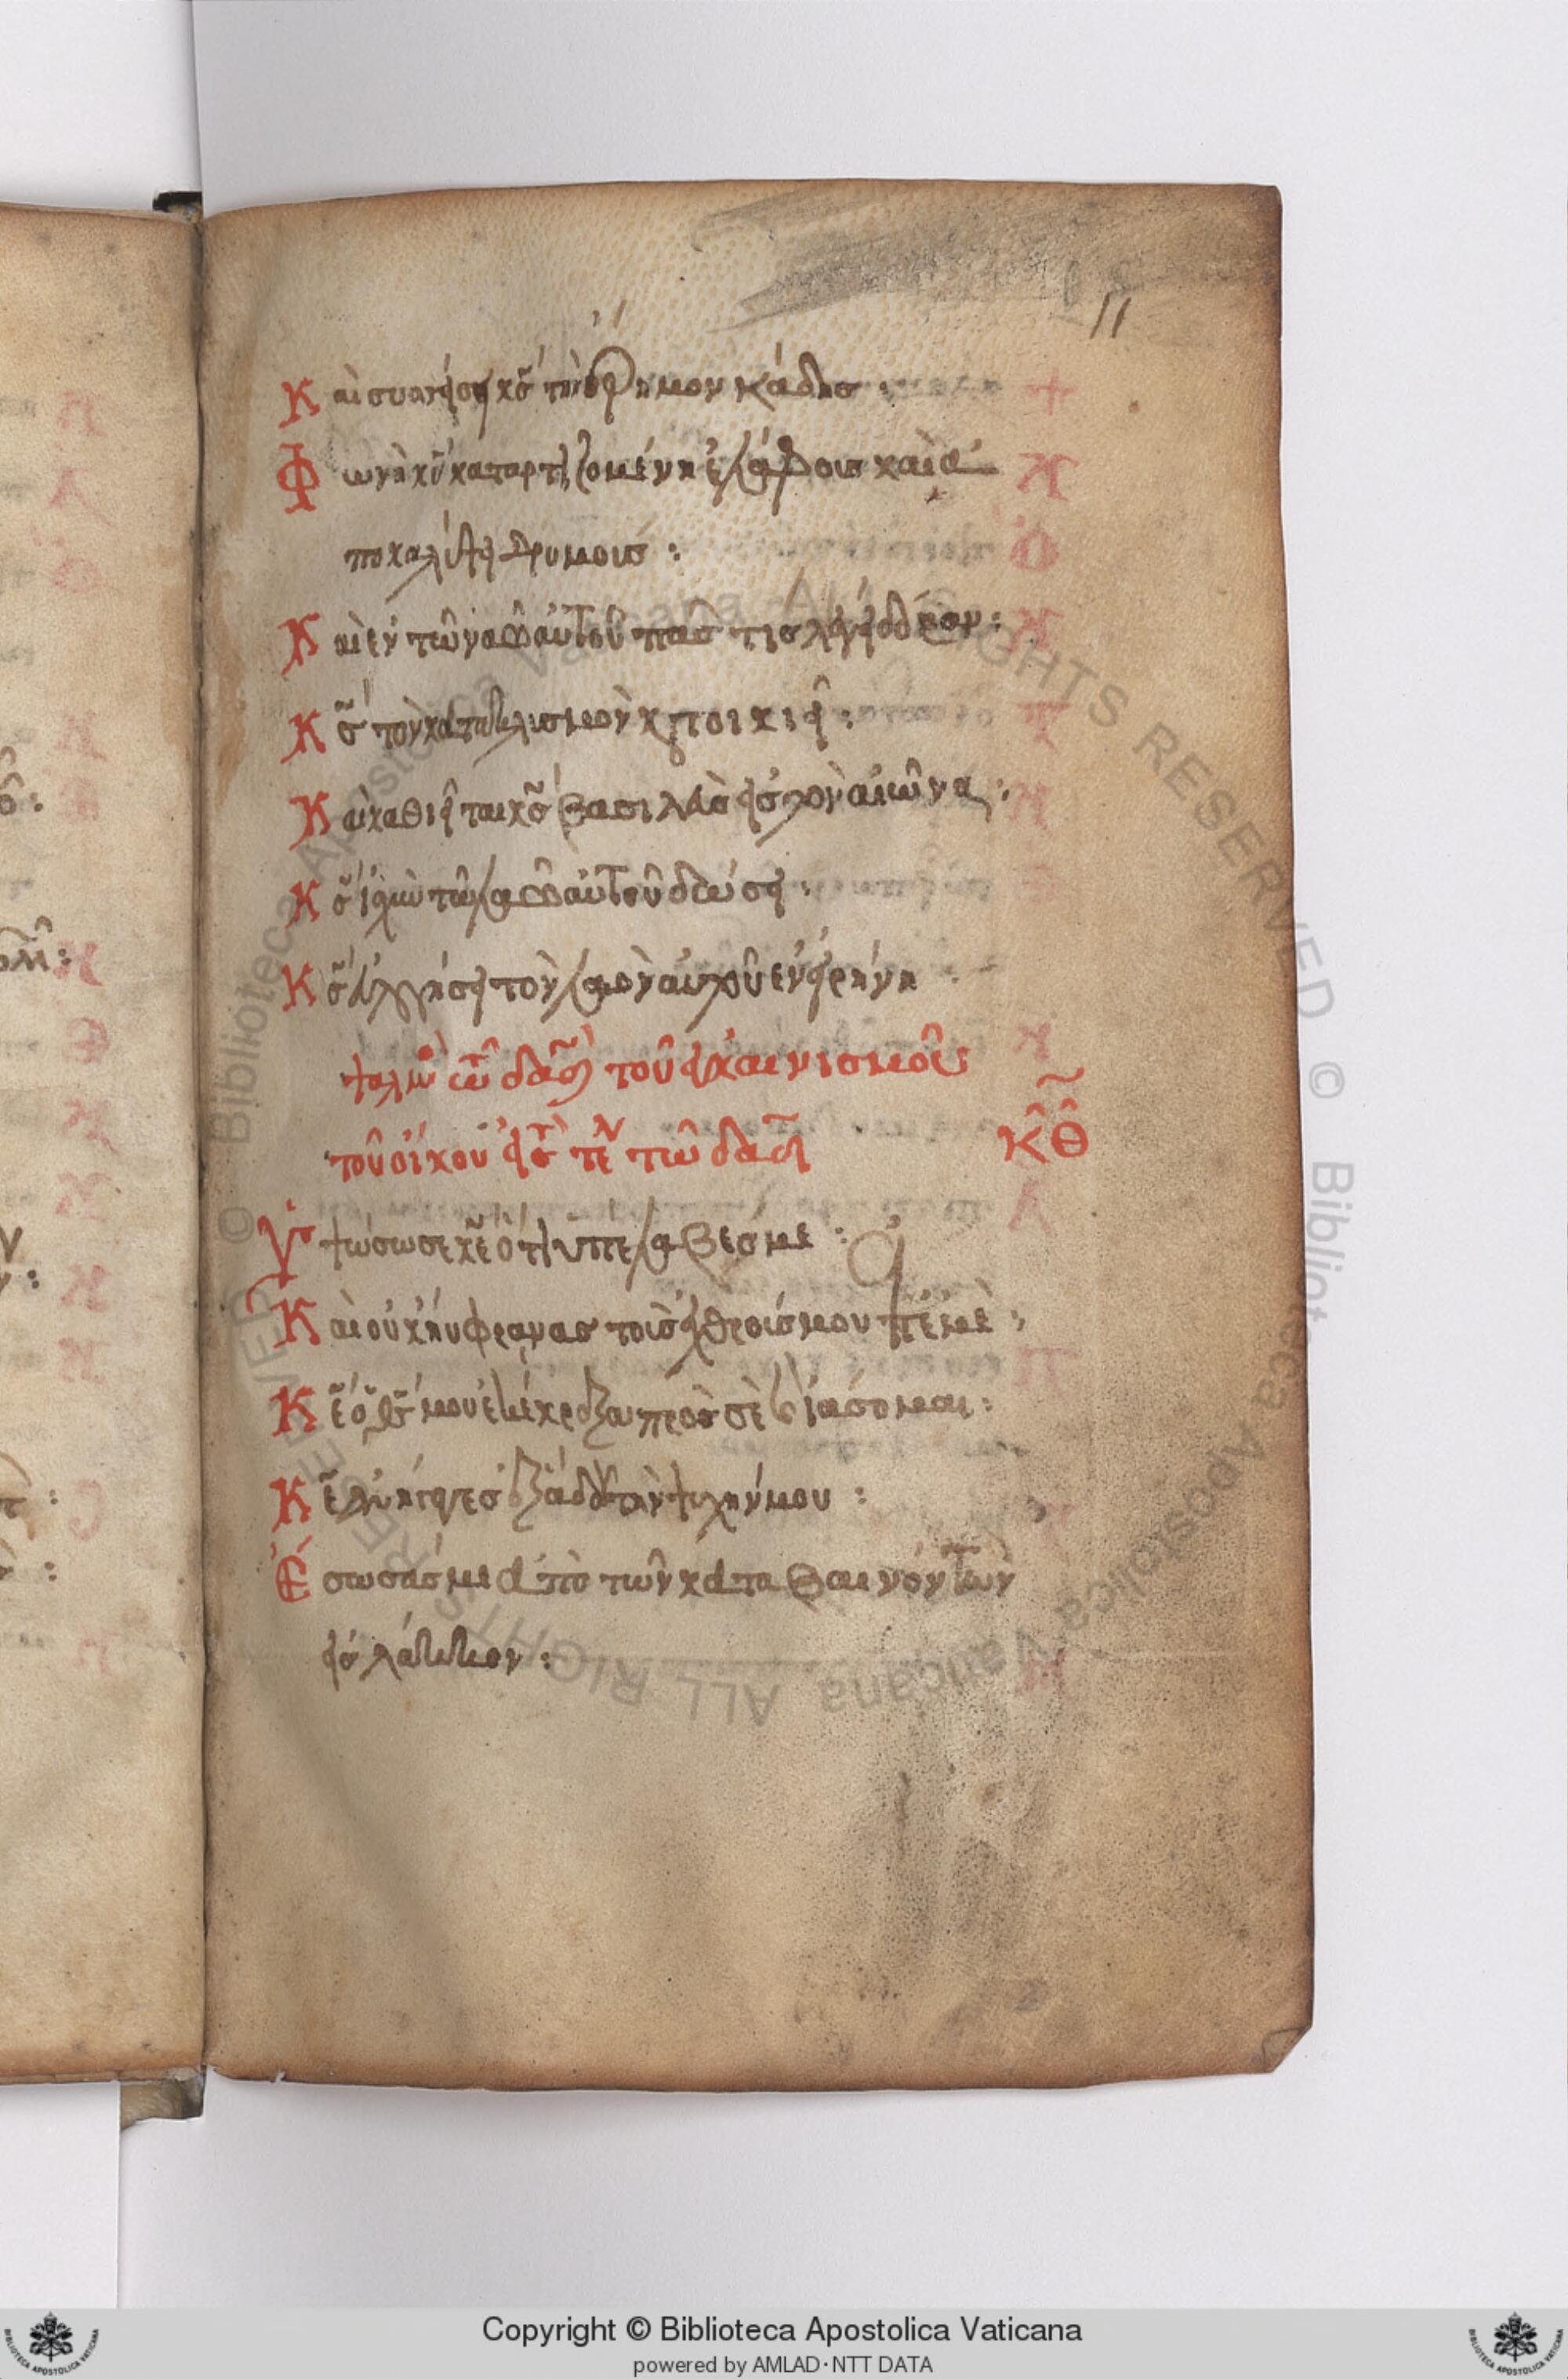 11
Καὶ συσείσει κ̅ς̅ τὴν ἔρημον Κάδης :
Φωνὴ κ̅υ̅ καταρτιζομένη ἐλάφους καὶ ἀ
ποκαλύψει δρυμούς :
Καὶ ἐν τῶ ναῶ αὐτοῦ πᾶς τις λέγει δόξαν :
Κ̅ς̅ τὸν κατακλυσμὸν κατοικιεῖ :
Καὶ καθιεῖται κ̅ς̅ βασιλεὺς εἰς τὸν αἰῶνα :
Κ̅ς̅ ἰσχὺν τῶ λαῶ αὐτοῦ δώσει :
Κ̅ς̅ εὐλογήσει τὸν λαὸν αὐτοῦ ἐν εἰρήνη
ψαλμὸς ὠδῆς τοῦ ἐγκαινισμοῦ
τοῦ οἴκου εἰς τὸ τέλος τῶ δα̅δ̅
ΚΘ
Ὑψώσω σε κ̅ε̅ ὅτι ὑπέλαβές με :
Καὶ οὐκ ηὔφρανας τοὺς ἐχθρούς μου ἐπ' ἐμέ :
Κ̅ε̅ ὁ θ̅ς̅ μου ἐκέκραξα πρὸς σὲ καὶ ἰάσω με :
Κ̅ε̅ ἀνήγαγες ἐξ ἅδου τὴν ψυχήν μου :
Ἔσωσάς με ἀπὸ τῶν καταβαινόντων
εἰς λάκκον :
Copyright © Biblioteca Apostolica Vaticana
powered by AMLAD·NTT DATA